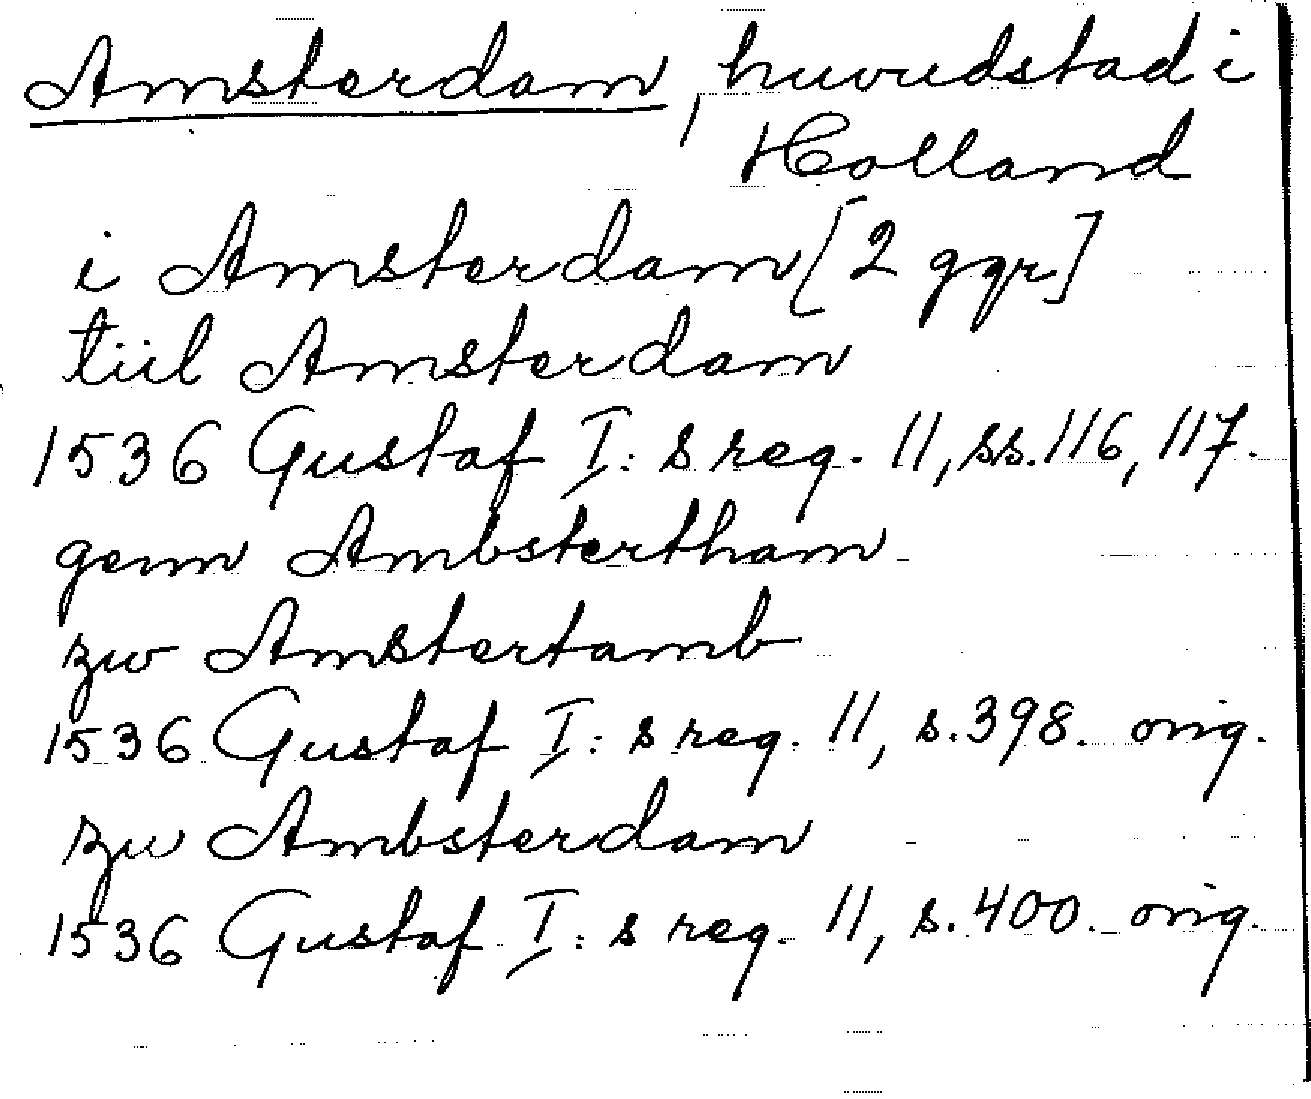 Amsterdam, huvudstad i
Holland
i Amsterdam [2 ggr]
tiil Amsterdam
1536 Gustaf I:s reg. 11, ss. 116, 117.
genn Ambstertham
zw Amstertamb
1536 Gustaf I:s reg. 11, s. 398. orig.
zw Ambsterdam
1536 Gustaf I:s reg. 11, s. 400. orig.